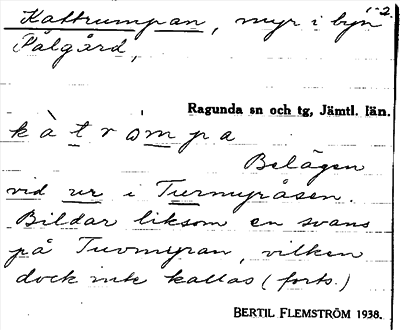 1-2.
Kattrumpan, myr i byn
Pålgård,
Ragunda sn och tg, Jämtl. län.
kàtròmpa
Belägen
vid ur i Turmyråsen.
Bildar liksom en svans
på Tuvmyran, vilken
dock inte kallas (forts.)
BERTIL FLEMSTRÖM 1938.